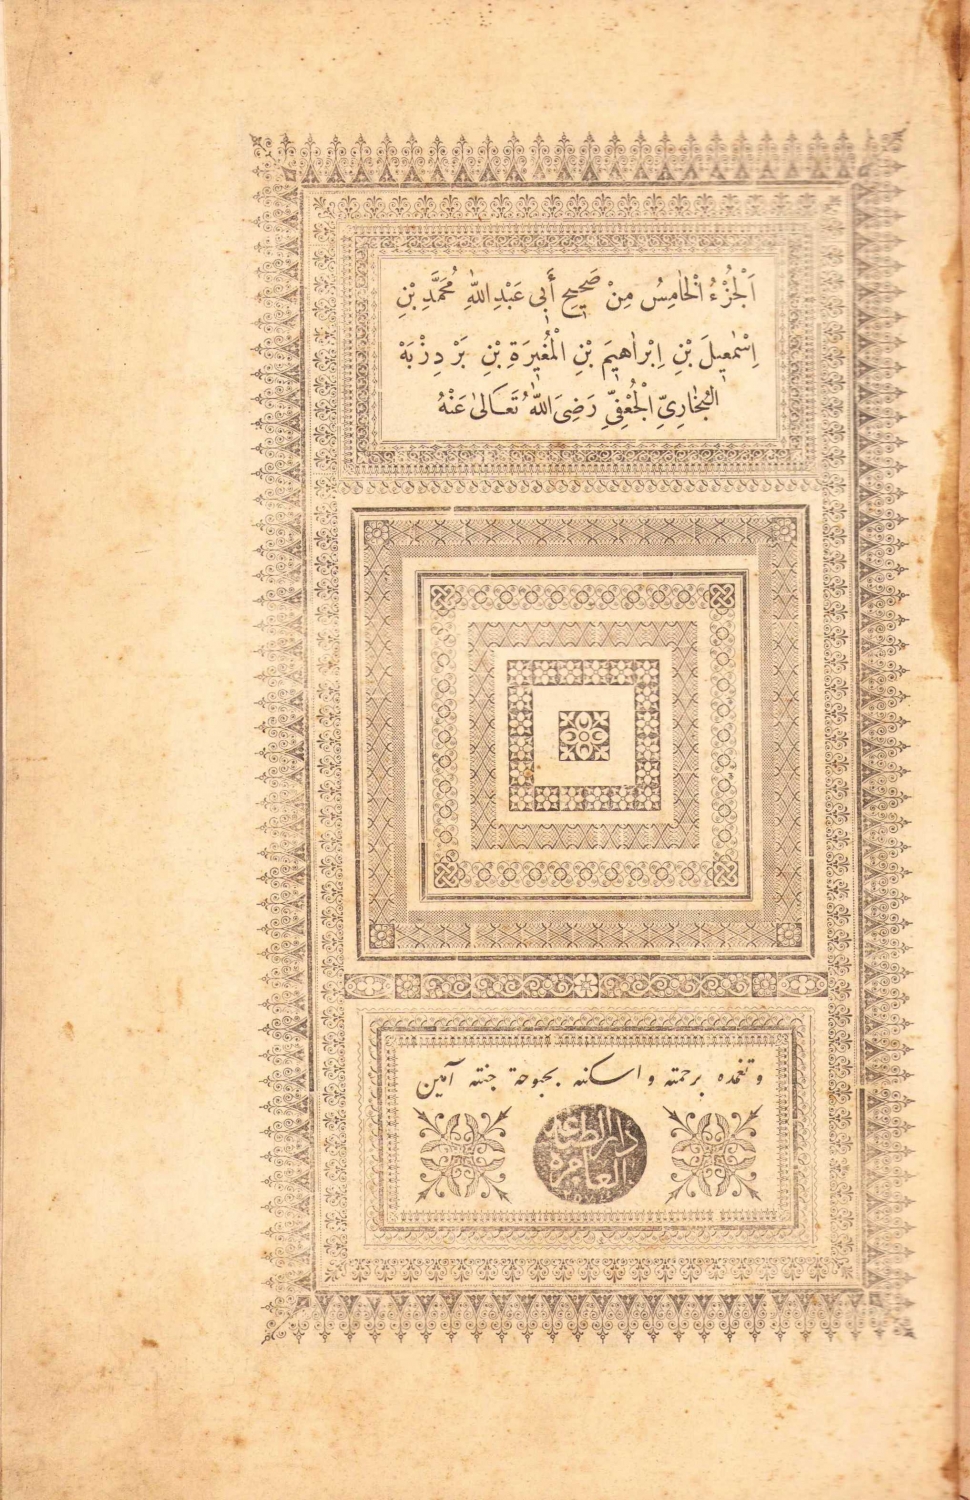 اَلْجُزْءُ الْخَامِسُ مِنْ صَحِيحِ أَبِي عَبْدِ اللّٰهِ مُحَمَّدِ بْنِ
اِسْمٰعِيلَ بْنِ اِبْرَاهِيمَ بْنِ الْمُغِيرَةِ بْنِ بَرْدِزْبَهْ
الْبُخَارِيِّ الْجُعْفِيِّ رَضِىَ اللّٰهُ تَعَالىٰ عَنْهُ
وتغمده برحمته واسكنه بحبوحة جنته آمين
دار الطباعة
العامره